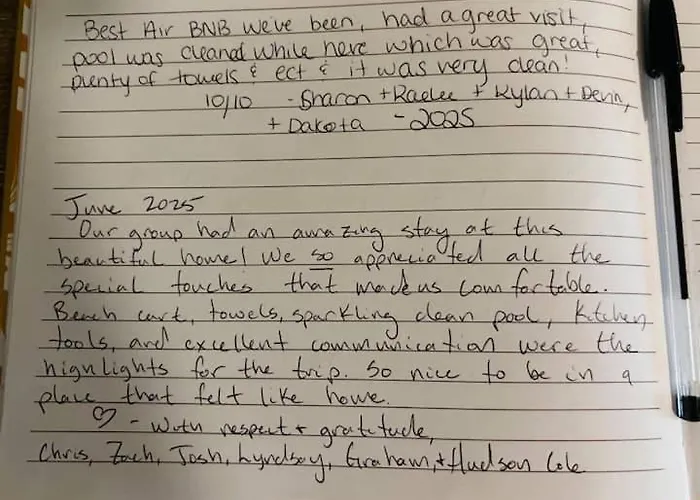 Best Air BNB we've been, had a great visit,
pool was cleaned while here which was great,
plenty of towels & ect & it was very clean!
10/10 - Sharon + Raelee + Kylan + Devin,
+ Dakota - 2025
June 2025
Our group had an amazing stay at this
beautiful home! We so appreciated all the
special touches that made us comfortable.
Beach cart, towels, sparkling clean pool, kitchen
tools, and excellent communication were the
highlights for the trip. So nice to be in a
place that felt like home.
♡ - With respect + gratitude,
Chris, Zach, Josh, Lyndsey, Graham, + Hudson Cole